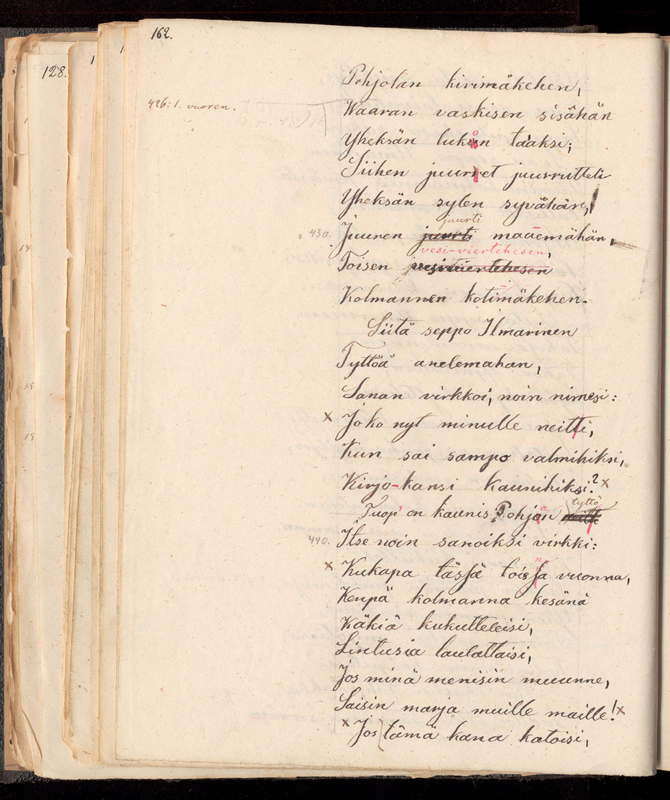 162.
128.
Pohjolan kivimäkehen,
426: 1. vuoren.
Waaran vaskisen sisähän
Yheksän lukon taaksi;
Siihen juuret juurrutteli
Yheksän sylen syvähän,
juurti
430. Juuren juurti maaemähän,
vesi-viertehesen,
Toisen vesiviertehesen
Kolmannen kotimäkehen.
Siitä seppo Ilmarinen
Tyttöä anelemahan,
Sanan virkkoi, noin nimesi:
x Joko nyt minulle neiti,
14
15
15
Kun sai sampo valmihiksi,
Kirjo-kansi kaunihiksi? x
tyttö
Tuop' on kaunis Pohjan
440. Itse noin sanoiksi virkki:
x Kukapa tässä toissa vuonna,
Kenpä kolmanna kesänä
Käkiä kukutteleisi,
Lintusia laulattaisi,
Jos minä menisin muunne,
Saisin marja muille maille! x
x Jos tämä kana katoisi,